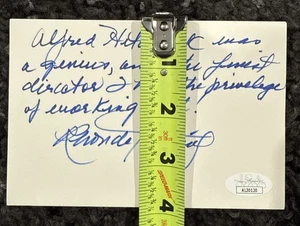 Alfred Hit k was
a genius, an the finest
director I the privelege
of working
Rhonda
1
2
3
4
JSA
AL30120